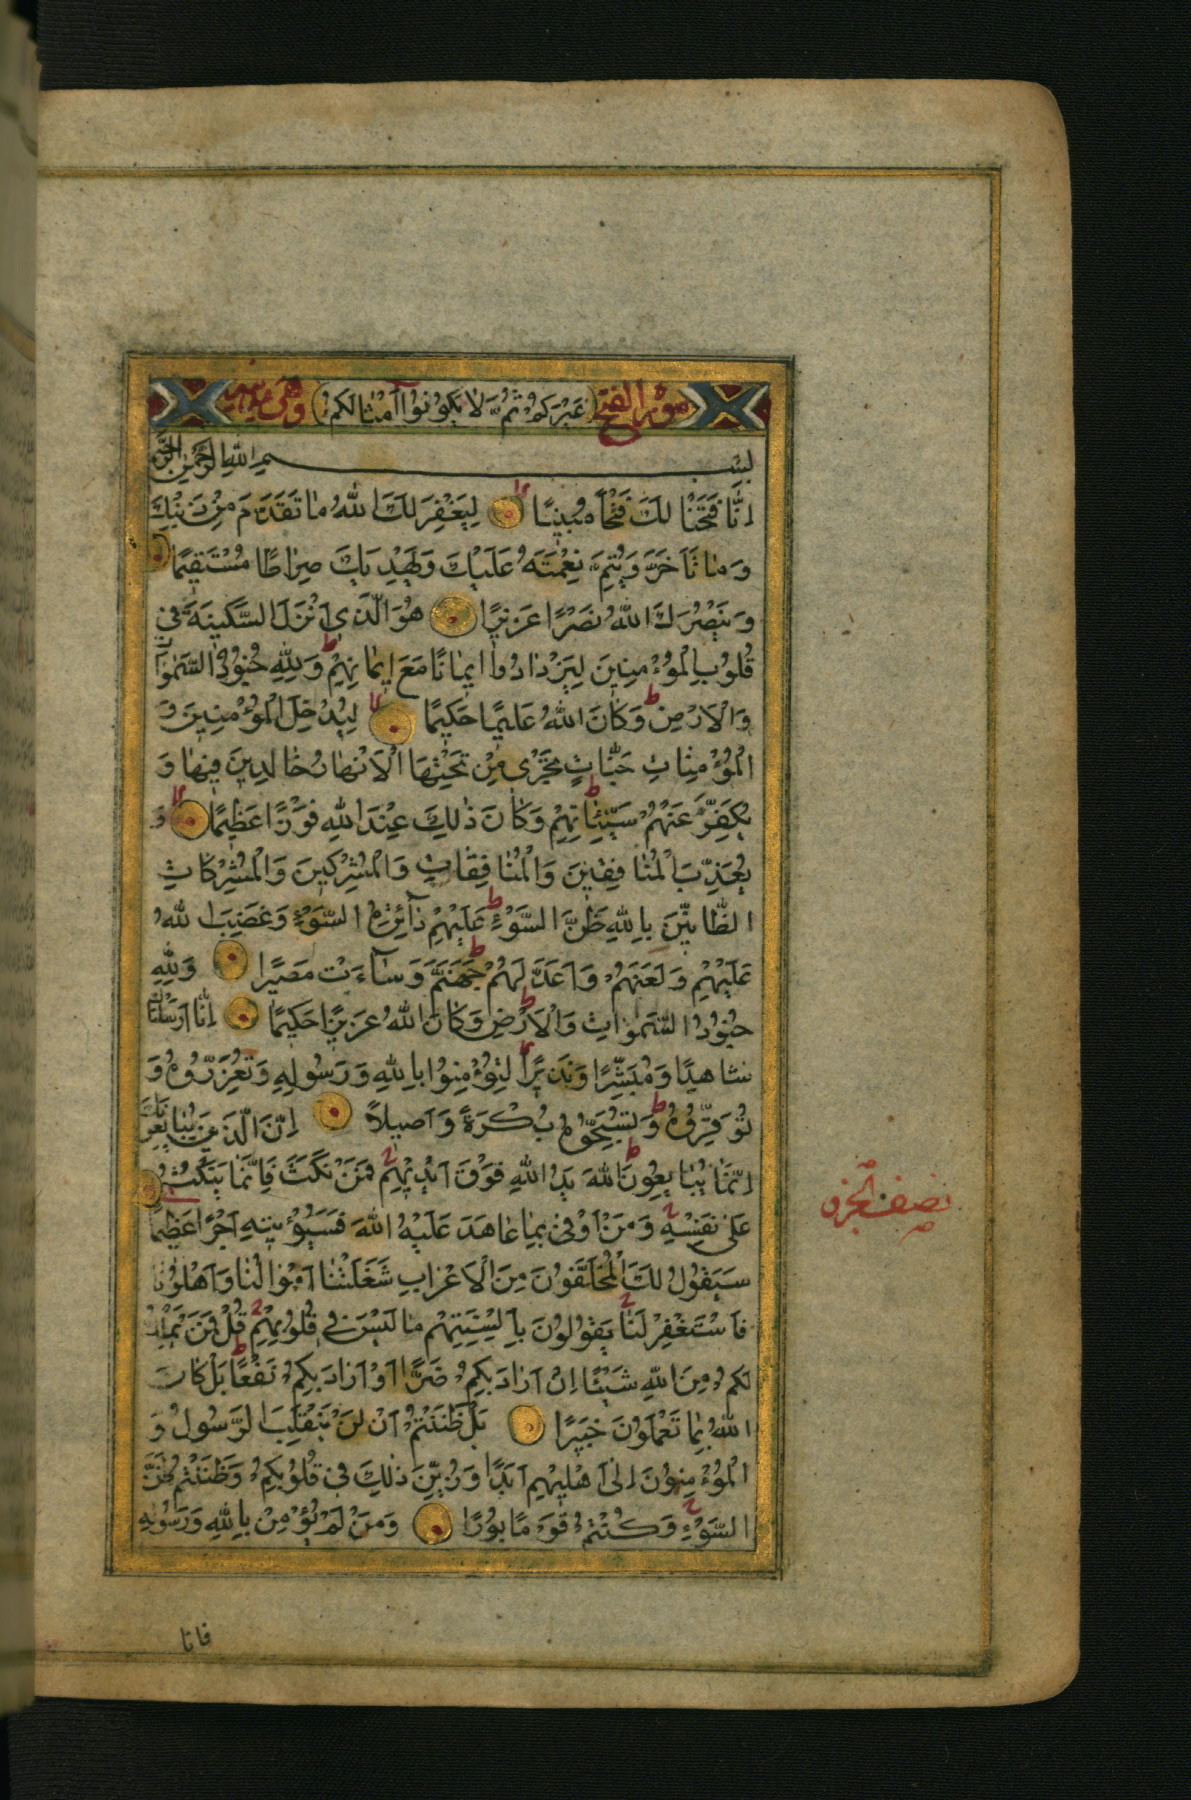 سورة الفتح غَيْرَكُمْ ثُمَّ لَا يَكُونُوا أَمْثَالَكُمْ وهى مدنية
بِسْمِ اللَّهِ الرَّحْمَنِ الرَّحِيمِ
إِنَّا فَتَحْنَا لَكَ فَتْحًا مُبِينًا لِيَغْفِرَ لَكَ اللَّهُ مَا تَقَدَّمَ مِنْ ذَنْبِكَ
وَمَا تَأَخَّرَ وَيُتِمَّ نِعْمَتَهُ عَلَيْكَ وَيَهْدِيَكَ صِرَاطًا مُسْتَقِيمًا
وَيَنْصُرَكَ اللَّهُ نَصْرًا عَزِيزًا هُوَ الَّذِي أَنْزَلَ السَّكِينَةَ فِي
قُلُوبِ الْمُؤْمِنِينَ لِيَزْدَادُوا إِيمَانًا مَعَ إِيمَانِهِمْ وَلِلَّهِ جُنُودُ السَّمٰوَاتِ
وَالْأَرْضِ وَكَانَ اللَّهُ عَلِيمًا حَكِيمًا لِيُدْخِلَ الْمُؤْمِنِينَ وَ
الْمُؤْمِنَاتِ جَنَّاتٍ تَجْرِي مِنْ تَحْتِهَا الْأَنْهَارُ خَالِدِينَ فِيهَا وَ
يُكَفِّرَ عَنْهُمْ سَيِّئَاتِهِمْ وَكَانَ ذٰلِكَ عِنْدَ اللَّهِ فَوْزًا عَظِيمًا وَ
يُعَذِّبَ الْمُنَافِقِينَ وَالْمُنَافِقَاتِ وَالْمُشْرِكِينَ وَالْمُشْرِكَاتِ
الظَّانِّينَ بِاللَّهِ ظَنَّ السَّوْءِ عَلَيْهِمْ دَآئِرَةُ السَّوْءِ وَغَضِبَ اللَّهُ
عَلَيْهِمْ وَلَعَنَهُمْ وَأَعَدَّ لَهُمْ جَهَنَّمَ وَسَآءَتْ مَصِيرًا وَلِلَّهِ
جُنُودُ السَّمٰوَاتِ وَالْأَرْضِ وَكَانَ اللَّهُ عَزِيزًا حَكِيمًا إِنَّا أَرْسَلْنَاكَ
شَاهِدًا وَمُبَشِّرًا وَنَذِيرًا لِتُؤْمِنُوا بِاللَّهِ وَرَسُولِهِ وَتُعَزِّرُوهُ وَ
تُوَقِّرُوهُ وَتُسَبِّحُوهُ بُكْرَةً وَأَصِيلًا إِنَّ الَّذِينَ يُبَايِعُونَكَ
إِنَّمَا يُبَايِعُونَ اللَّهَ يَدُ اللَّهِ فَوْقَ أَيْدِيهِمْ فَمَنْ نَكَثَ فَإِنَّمَا يَنْكُثُ
عَلَىٰ نَفْسِهِ وَمَنْ أَوْفَىٰ بِمَا عَاهَدَ عَلَيْهُ اللَّهَ فَسَيُؤْتِيهِ أَجْرًا عَظِيمًا
سَيَقُولُ لَكَ الْمُخَلَّفُونَ مِنَ الْأَعْرَابِ شَغَلَتْنَا أَمْوَالُنَا وَأَهْلُونَا
فَاسْتَغْفِرْ لَنَا يَقُولُونَ بِأَلْسِنَتِهِمْ مَا لَيْسَ فِي قُلُوبِهِمْ قُلْ فَمَنْ يَمْلِكُ
لَكُمْ مِنَ اللَّهِ شَيْئًا إِنْ أَرَادَ بِكُمْ ضَرًّا أَوْ أَرَادَ بِكُمْ نَفْعًا بَلْ كَانَ
اللَّهُ بِمَا تَعْمَلُونَ خَبِيرًا بَلْ ظَنَنْتُمْ أَنْ لَنْ يَنْقَلِبَ الرَّسُولُ وَ
الْمُؤْمِنُونَ إِلَىٰ أَهْلِيهِمْ أَبَدًا وَزُيِّنَ ذٰلِكَ فِي قُلُوبِكُمْ وَظَنَنْتُمْ ظَنَّ
السَّوْءِ وَكُنْتُمْ قَوْمًا بُورًا وَمَنْ لَمْ يُؤْمِنْ بِاللَّهِ وَرَسُولِهِ
نصف الجزو
فانا